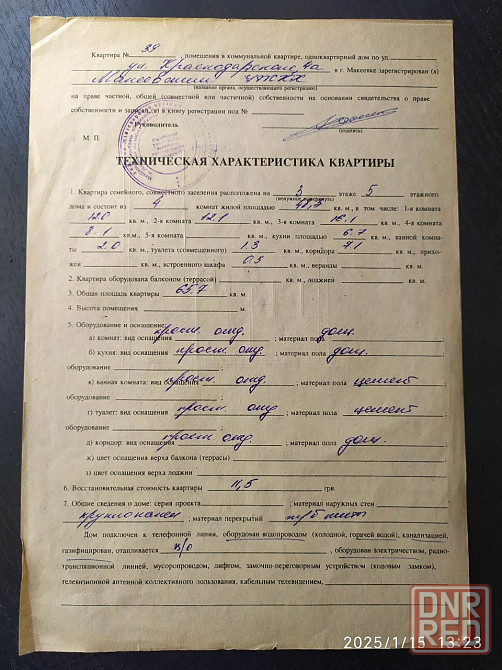 Квартира № 39, помещения в коммунальной квартире, одноквартирный дом по ул
ул. Краснодарская, 4а
в г. Макеевке зарегистрирован (а)
Макеевский УЖКХ
(название органа, осуществившего регистрации)
на праве частной, общей, (совместной или частичной) собственности на основании свидетельства о праве
собственности и записан (а) в книгу регистрации под №
Руководитель
(подпись)
М. П.
ТЕХНИЧЕСКАЯ ХАРАКТЕРИСТИКА КВАРТИРЫ
1. Квартира семейного, совместного заселения расположена на 3 этаже 5 этажного
(ненужное зачеркнуть)
дома и состоит из 4 комнат жилой площадью кв. м., в том числе: 1-я комната
12.0 кв. м., 2-я комната 12.1 кв. м., 3-я комната 16.1 кв. м., 4-я комната
8.1 кв. м., 5-я комната кв. м., кухни площадью 6.7 кв. м., ванной комна-
ты 2.0 кв. м., туалета (совмещенного) 1.3 кв. м., коридора 7.1 кв. м., прихо-
жей кв. м., встроенного шкафа 0.5 кв. м., веранды кв. м.
2. Квартира оборудована балконом (террасой) кв. м., лоджией кв. м.
3. Общая площадь квартиры 65.7 кв. м.
4. Высота помещения м.
5. Оборудование и оснащение:
а) комнат: вид оснащения прост. отд. ; материал пола дощ.
б) кухни: вид оснащения прост. отд. ; материал пола дощ.
оборудование
в) ванная комната: вид оснащения прост. отд. ; материал пола цемент
оборудование
г) туалет: вид оснащения прост. отд ; материал пола цемент
оборудование
д) коридор: вид оснащения прост отд. ; материал пола дощ.
ж) цвет оснащения верха балкона (террасы)
з) цвет оснащения верха лоджии
6. Восстановительная стоимость квартиры 11,5 грв.
7. Общие сведения о доме: серия проекта ; материал наружных стен
крупнопанел ; материал перекрытий ж/б плиты
Дом подключен к телефонной линии, оборудован водопроводом (холодной, горячей водой), канализацией,
газифицирован, отапливается ц/о , оборудован электричеством, радио-
трансляционной линией, мусоропроводом, лифтом, замочно-переговорным устройством (кодовым замком),
телевизионной антенной коллективного пользования, кабельным телевидением,
DNR
RED
2025/1/15 13:23